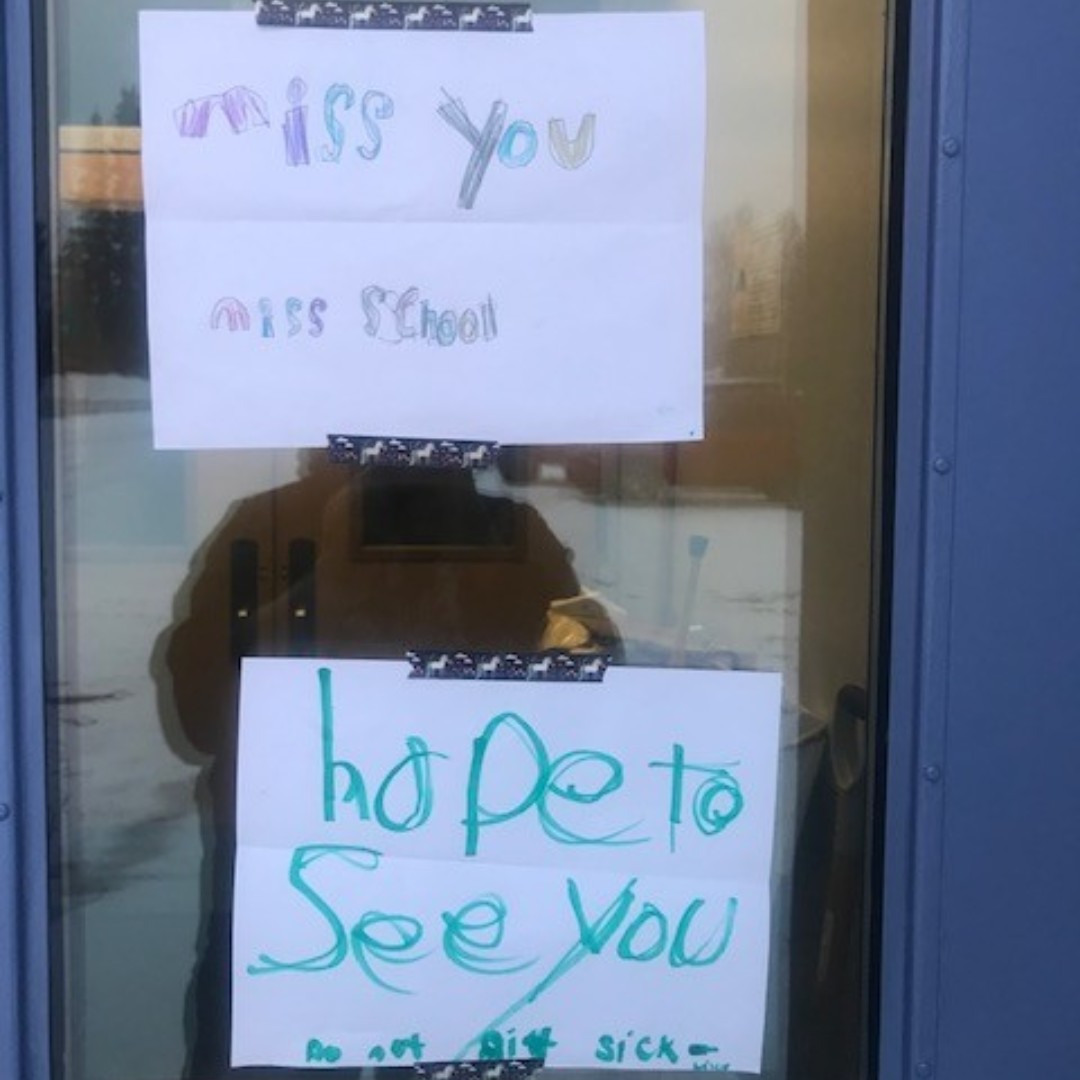 miss you
miss school
hope to
See you
Do not Git sick